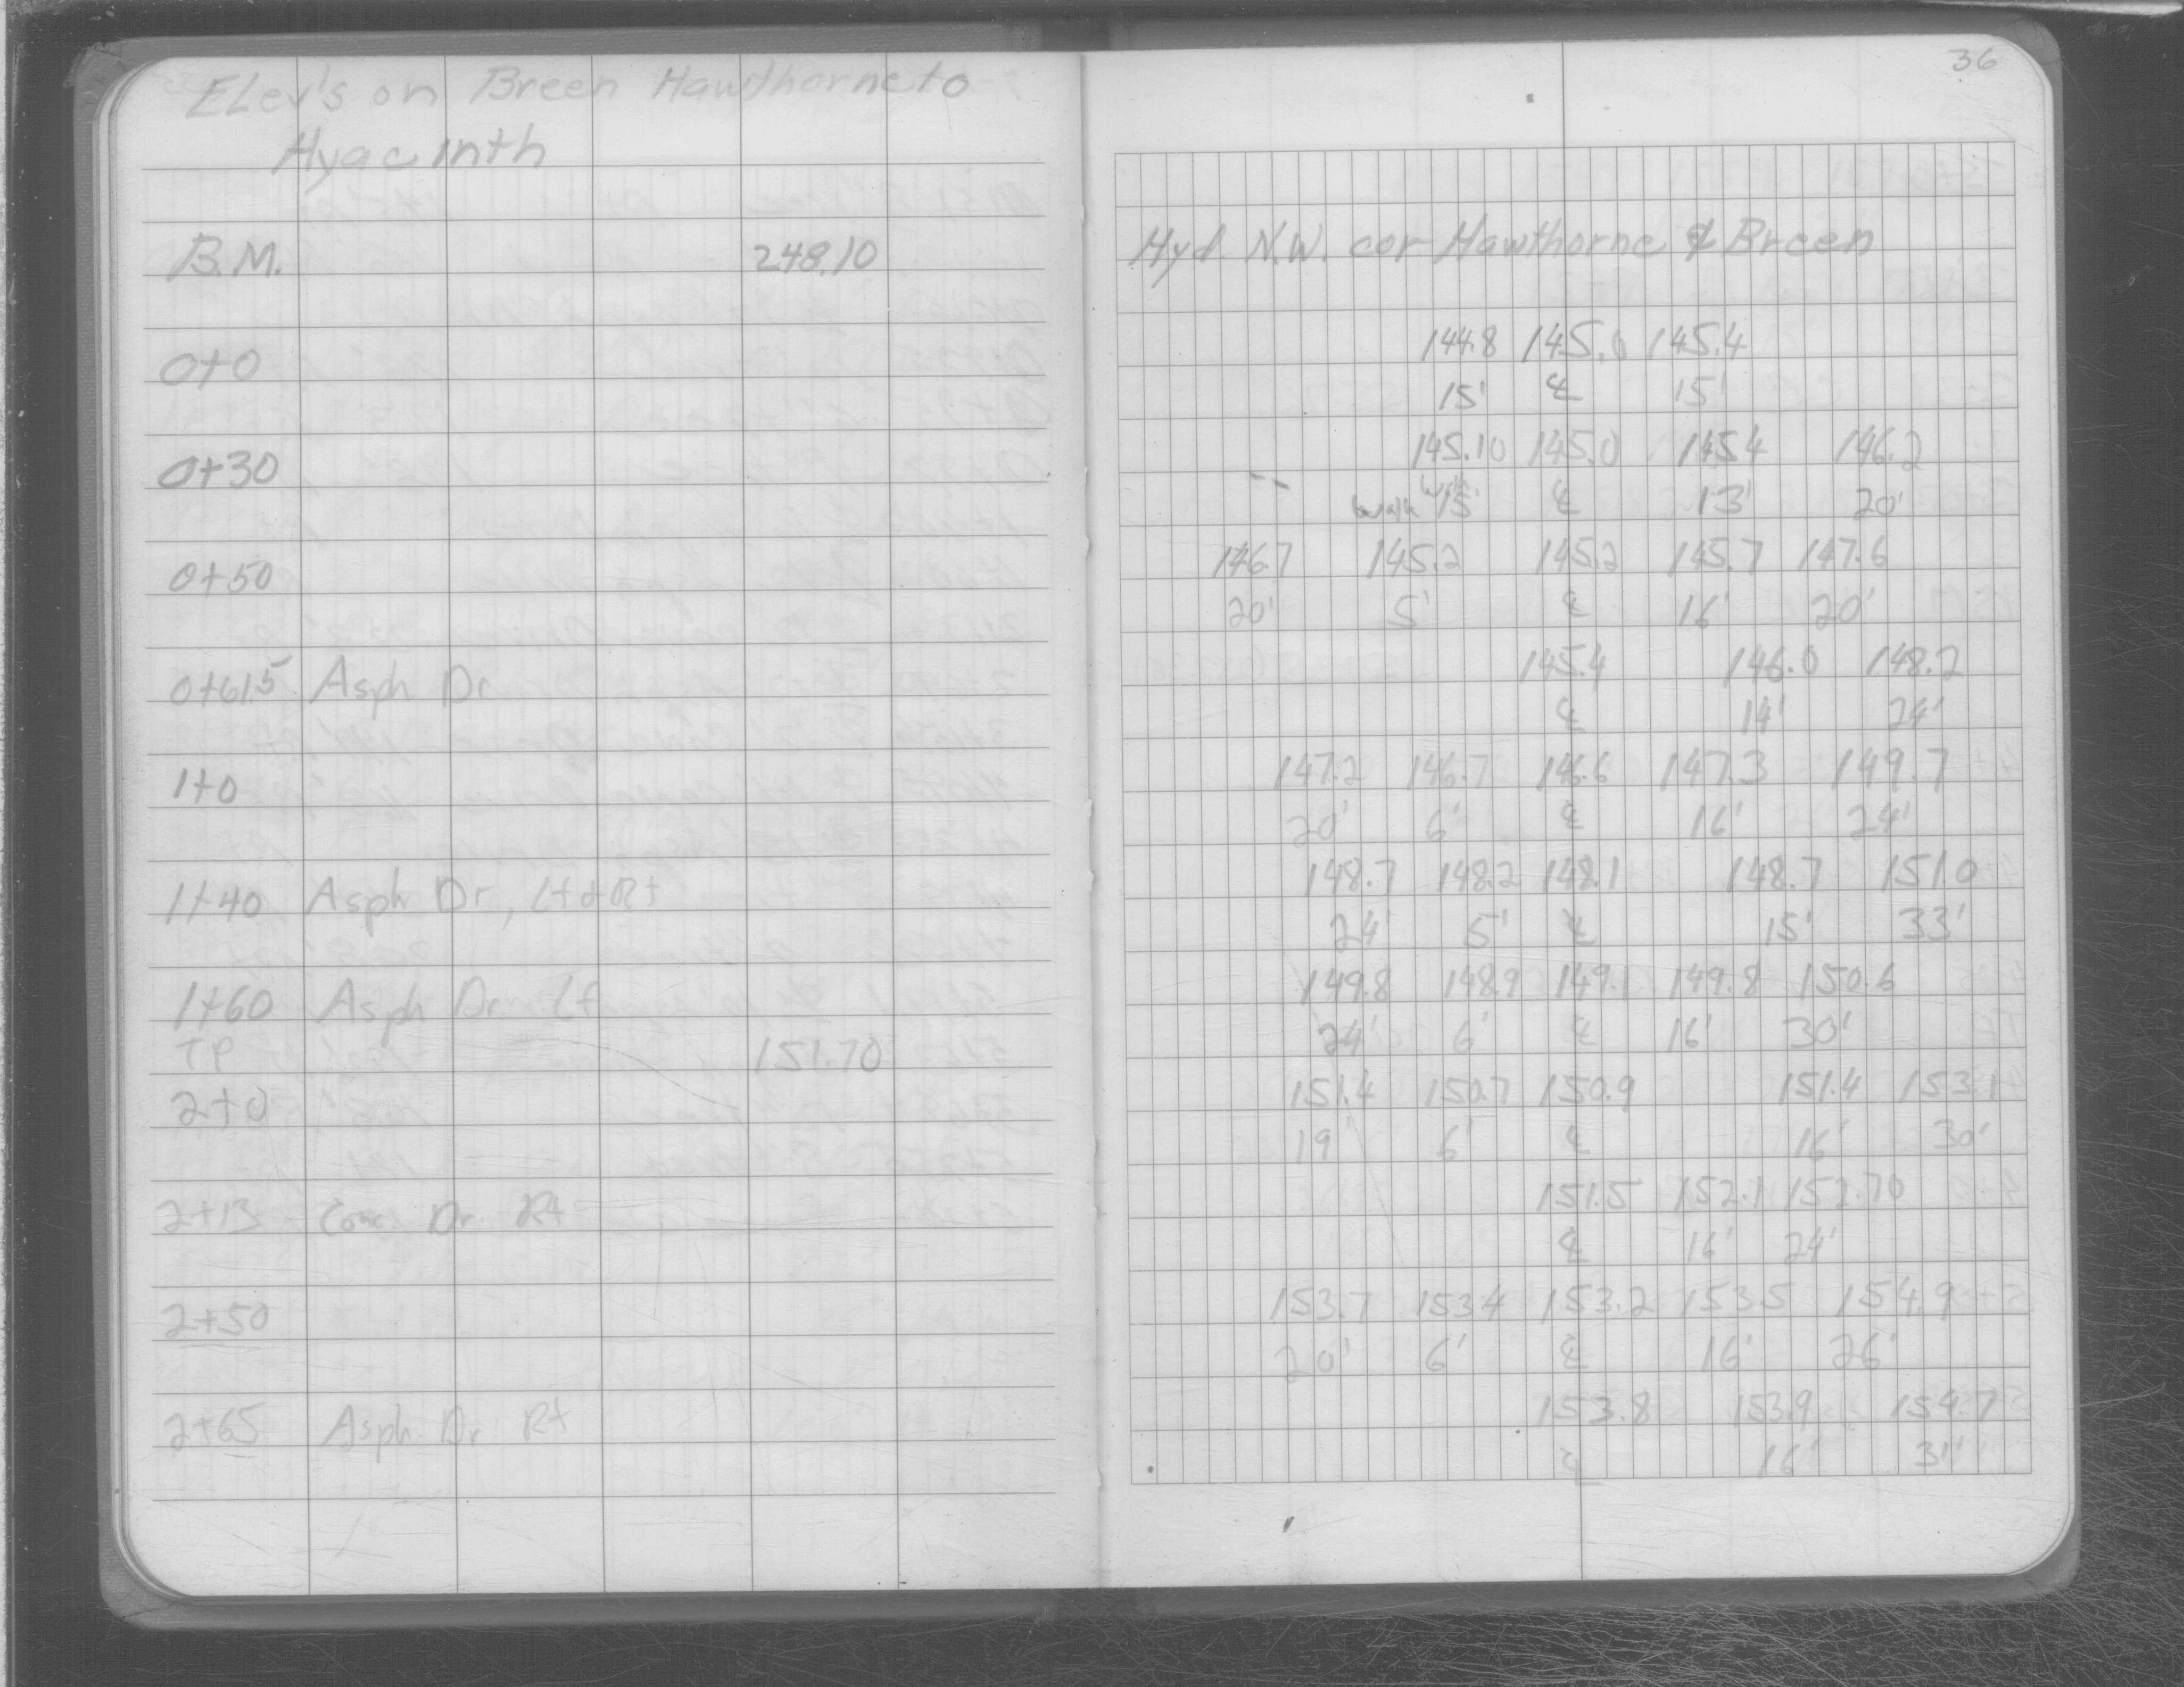 36
ELev's on Breen Hawthorne to
Hyacinth
B.M. 248.10 Hyd. N.W. cor Hawthorne & Breen
144.8 145.0 145.4
0+0 15' ℄ 15'
145.10 145.0 145.4 146.2
0+30 walk walk 15' ℄ 13' 20'
146.7 145.2 145.2 145.7 147.6
0+50 20' 5' ℄ 16' 20'
145.4 146.0 148.2
0+61.5 Asph Dr ℄ 14' 24'
147.2 146.7 146.6 147.3 149.7
1+0 20' 6' ℄ 16' 24'
148.7 148.2 148.1 148.7 151.0
1+40 Asph Dr, Lt & Rt 24' 5' ℄ 15' 33'
149.8 148.9 149.1 149.8 150.6
1+60 Asph Dr. Lt 24' 6' ℄ 16' 30'
TP 151.70
151.4 150.7 150.9 151.4 153.1
2+0 19' 6' ℄ 16' 30'
151.5 152.1 152.70
2+13 Conc. Dr. Rt ℄ 16' 24'
153.7 153.4 153.2 153.5 154.9
2+50 20' 6' ℄ 16' 26'
153.8 153.9 154.7
2+65 Asph. Dr Rt ℄ 16' 31'